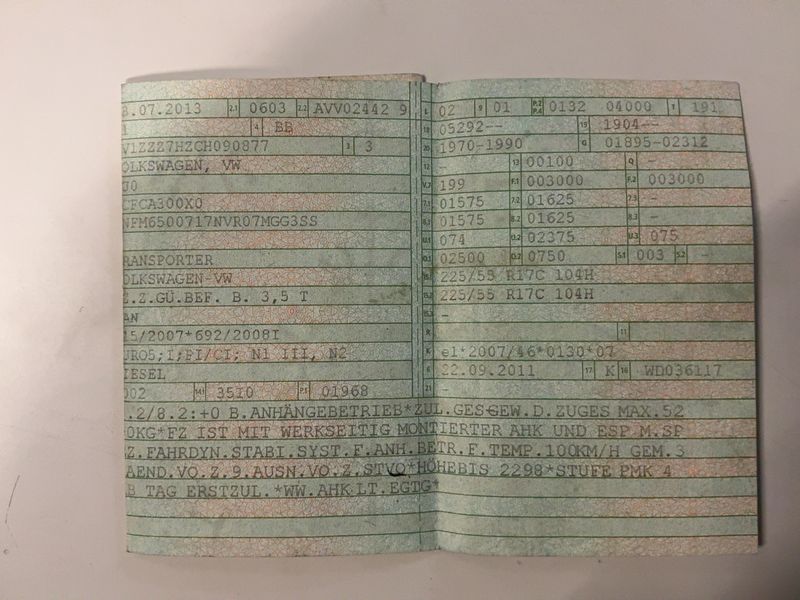 3.07.2013 2.1 0603 2.2 AVV02442 9
4 BB
V1ZZZ7HZCH090877 3 3
OLKSWAGEN, VW
J0
CFCA300X0
NFM6500717NVR07MGG3SS
RANSPORTER
OLKSWAGEN-VW
.Z.GÜ.BEF. B. 3,5 T
AN
15/2007*692/2008I
URO5;I;PI/CI; N1 III, N2
IESEL
002 14.1 3510 P.1 01968
02 9 01 P.2 P.4 0132 04000 T 191
18 05292-- 19 1904--
20 1970-1990 G 01895-02312
- 13 00100 Q -
V.7 199 F.1 003000 F.2 003000
7.1 01575 7.2 01625 7.3 -
8.1 01575 8.2 01625 8.3 -
U.1 074 U.2 02375 U.3 075
O.1 02500 O.2 0750 S.1 003 S.2 -
225/55 R17C 104H
225/55 R17C 104H
-
R 11
K e1*2007/46*0130*07
6 22.09.2011 17 K 16 WD036117
21 -
.2/8.2:+0 B.ANHÄNGEBETRIEB*ZUL.GESGEW.D.ZUGES MAX.52
0KG*FZ IST MIT WERKSEITIG MONTIERTER AHK UND ESP M.SP
Z.FAHRDYN.STABI.SYST.F.ANH.BETR.F.TEMP.100KM/H GEM.3
AEND.VO.Z.9.AUSN.VO.Z.STVO*HÖHEBIS 2298*STUFE PMK 4
B TAG ERSTZUL.*WW.AHK LT.EGTG*